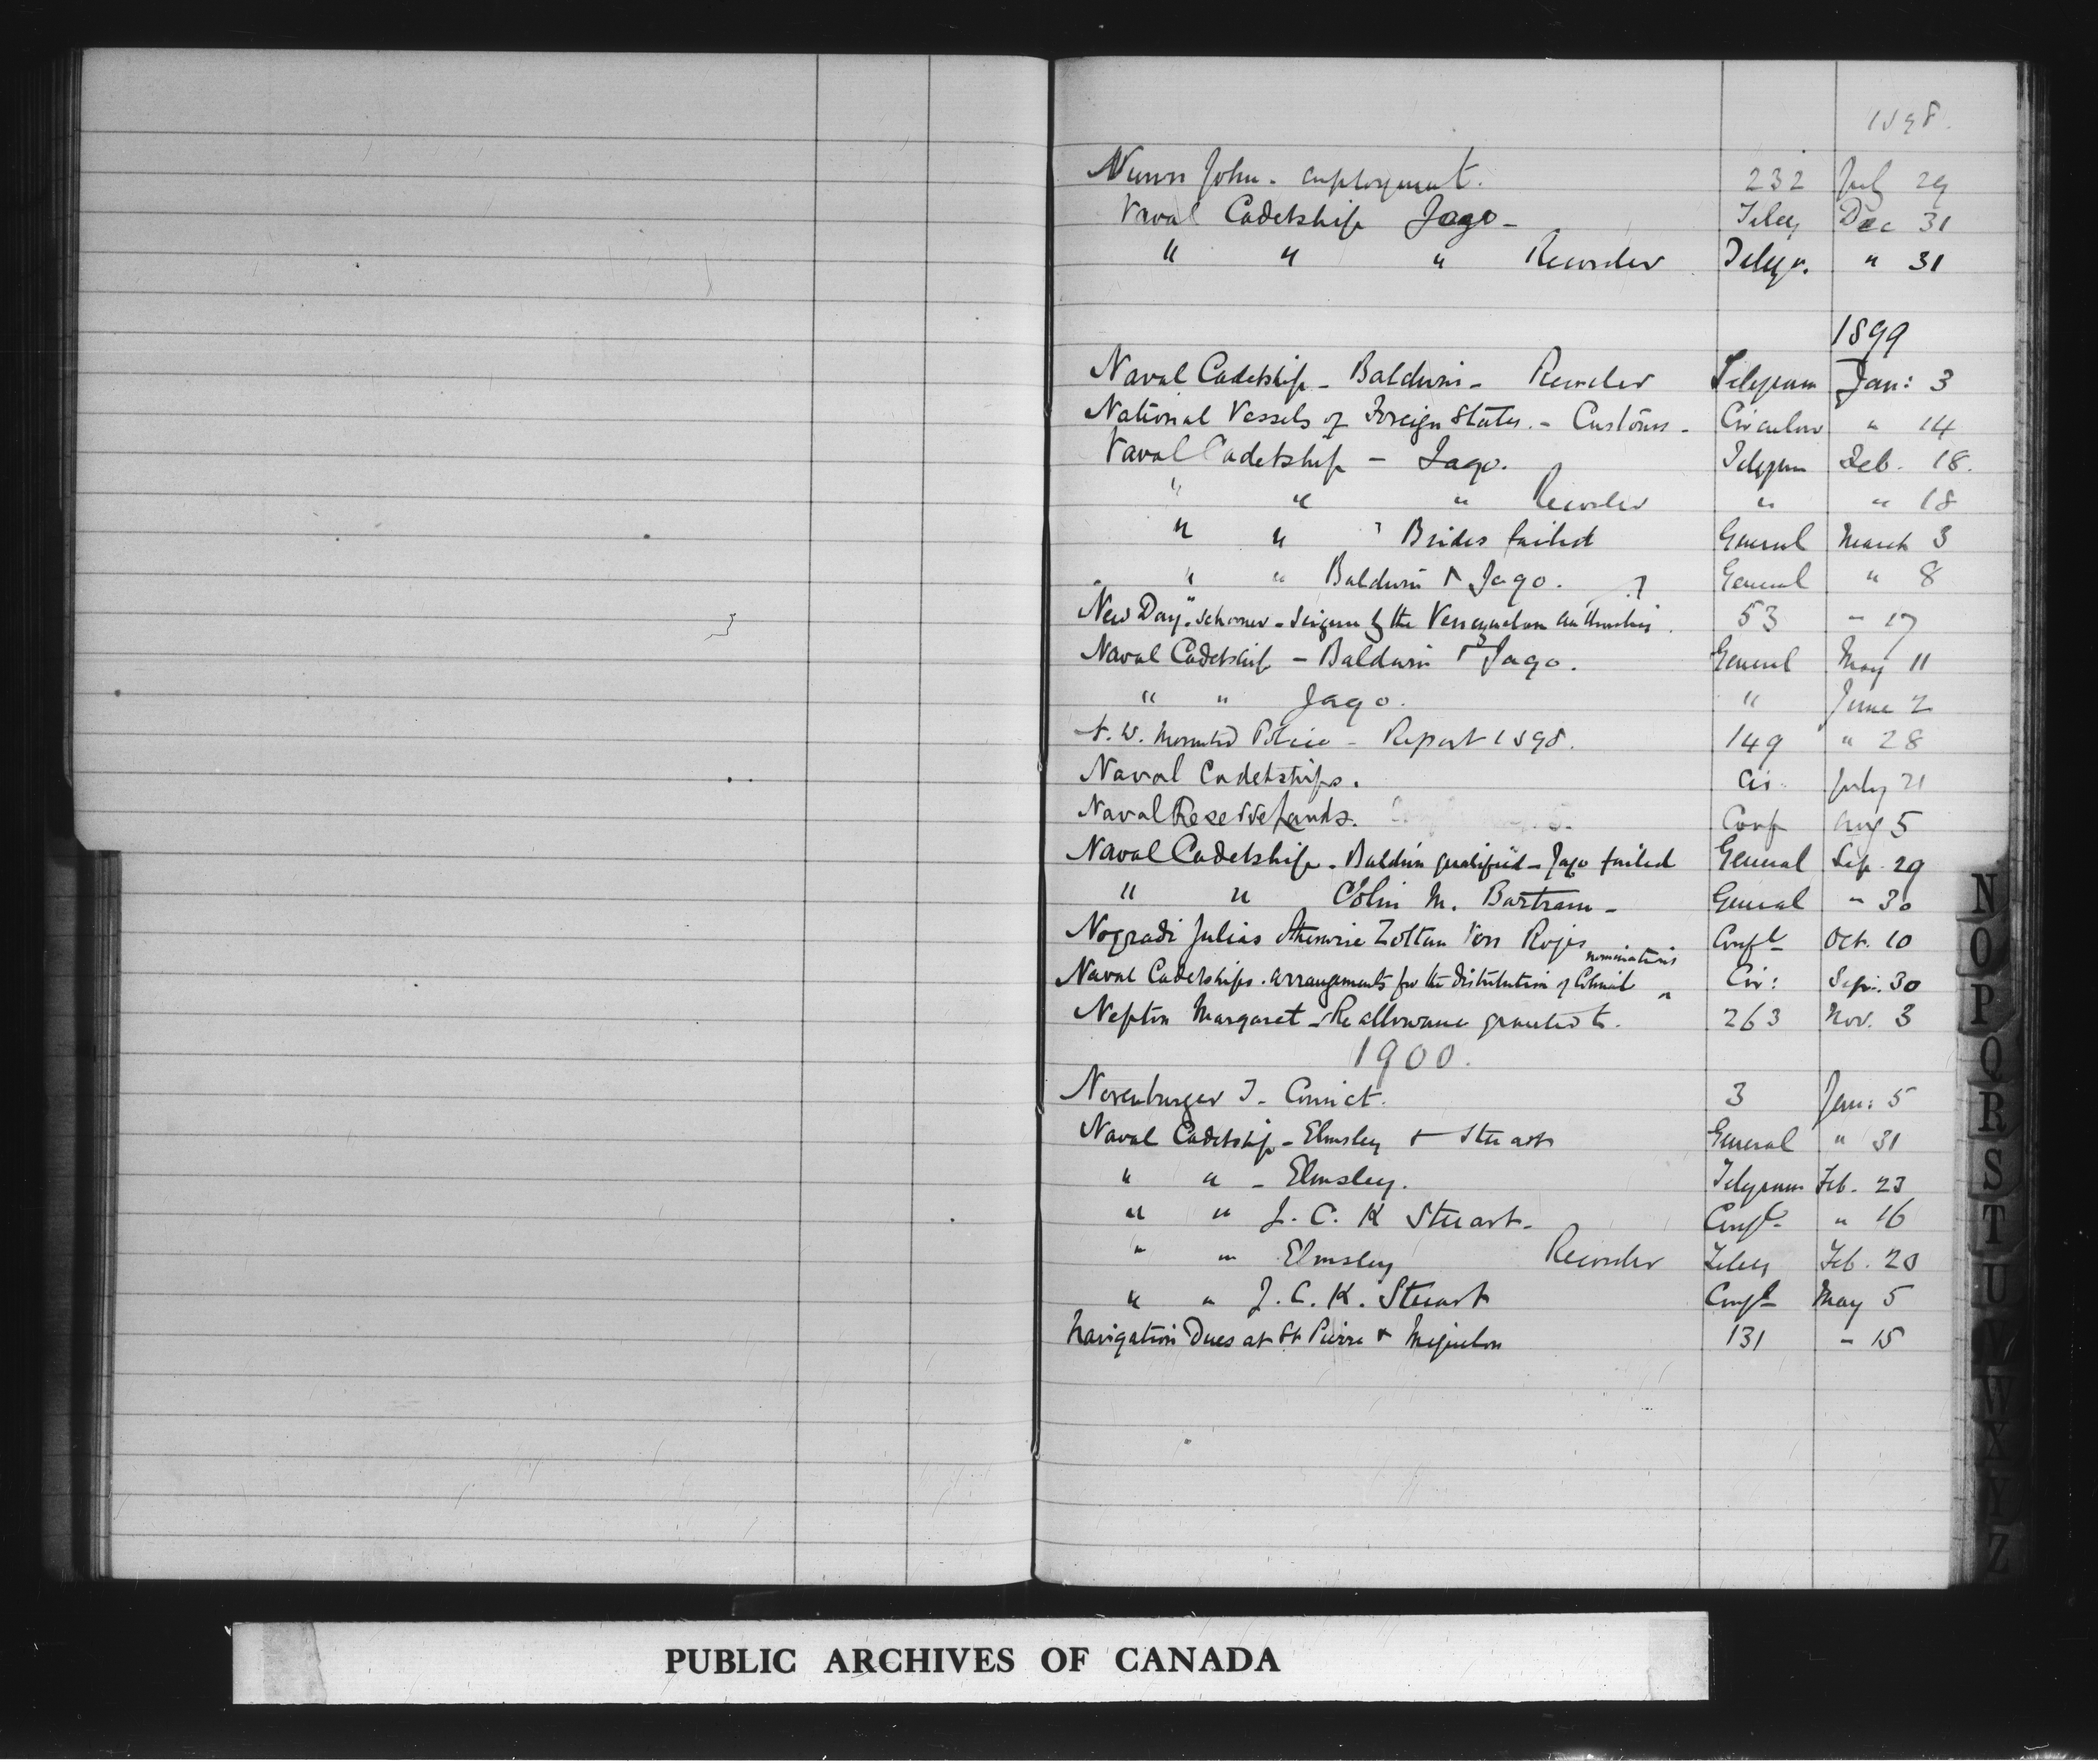 1898.
Nunn John - employment. 232 July 29
Naval Cadetship Jago - Teleg Dec 31
" " " Reorder Telegr. " 31
1899
Naval Cadetship - Baldwin - Reorder Telegram Jan: 3
National Vessels of Foreign States. - Customs - Circular " 14
Naval Cadetship - Jago. Telegram Feb. 18.
" " " Reorder " " 18
" " " Brides failed General March 3
" " Baldwin & Jago. General " 8
New Day" schooner - Seizure by the Venezuelan authorities. 53 " 17
Naval Cadetship - Baldwin & Jago. General May 11
" " Jago. " June 2
N. W. Mounted Police - Report 1898. 149 " 28
Naval Cadetships. Cir. July 21
Naval Reserve Lands. Conf Aug 5
Naval Cadetship - Baldwin qualified - Jago failed General Sep. 29
" " Colin M. Bartram - General " 30
Nogradi Julius otherwise Zoltan Von Confl Oct. 10
nominations
Naval Cadetships. arrangements for the distribution of Colonial ^ Cir: Sep. 30
Nepton Margaret - Re allowance granted to. 263 Nov. 3
1900.
Norenburger J - Convict. 3 Jan: 5
Naval Cadetship - Elmsley & Stuart General " 31
" " - Elmsley. Telegram Feb. 23
" " J. C. K Stuart - Confl " 16
" " Elmsley Reorder Teleg Feb. 20
" " J. C. K. Stuart Confl May 5
Navigation Dues at St Pierre & Miquelon 131 " 15
N
O
P
Q
R
S
T
U
W
X
Y
Z
PUBLIC ARCHIVES OF CANADA